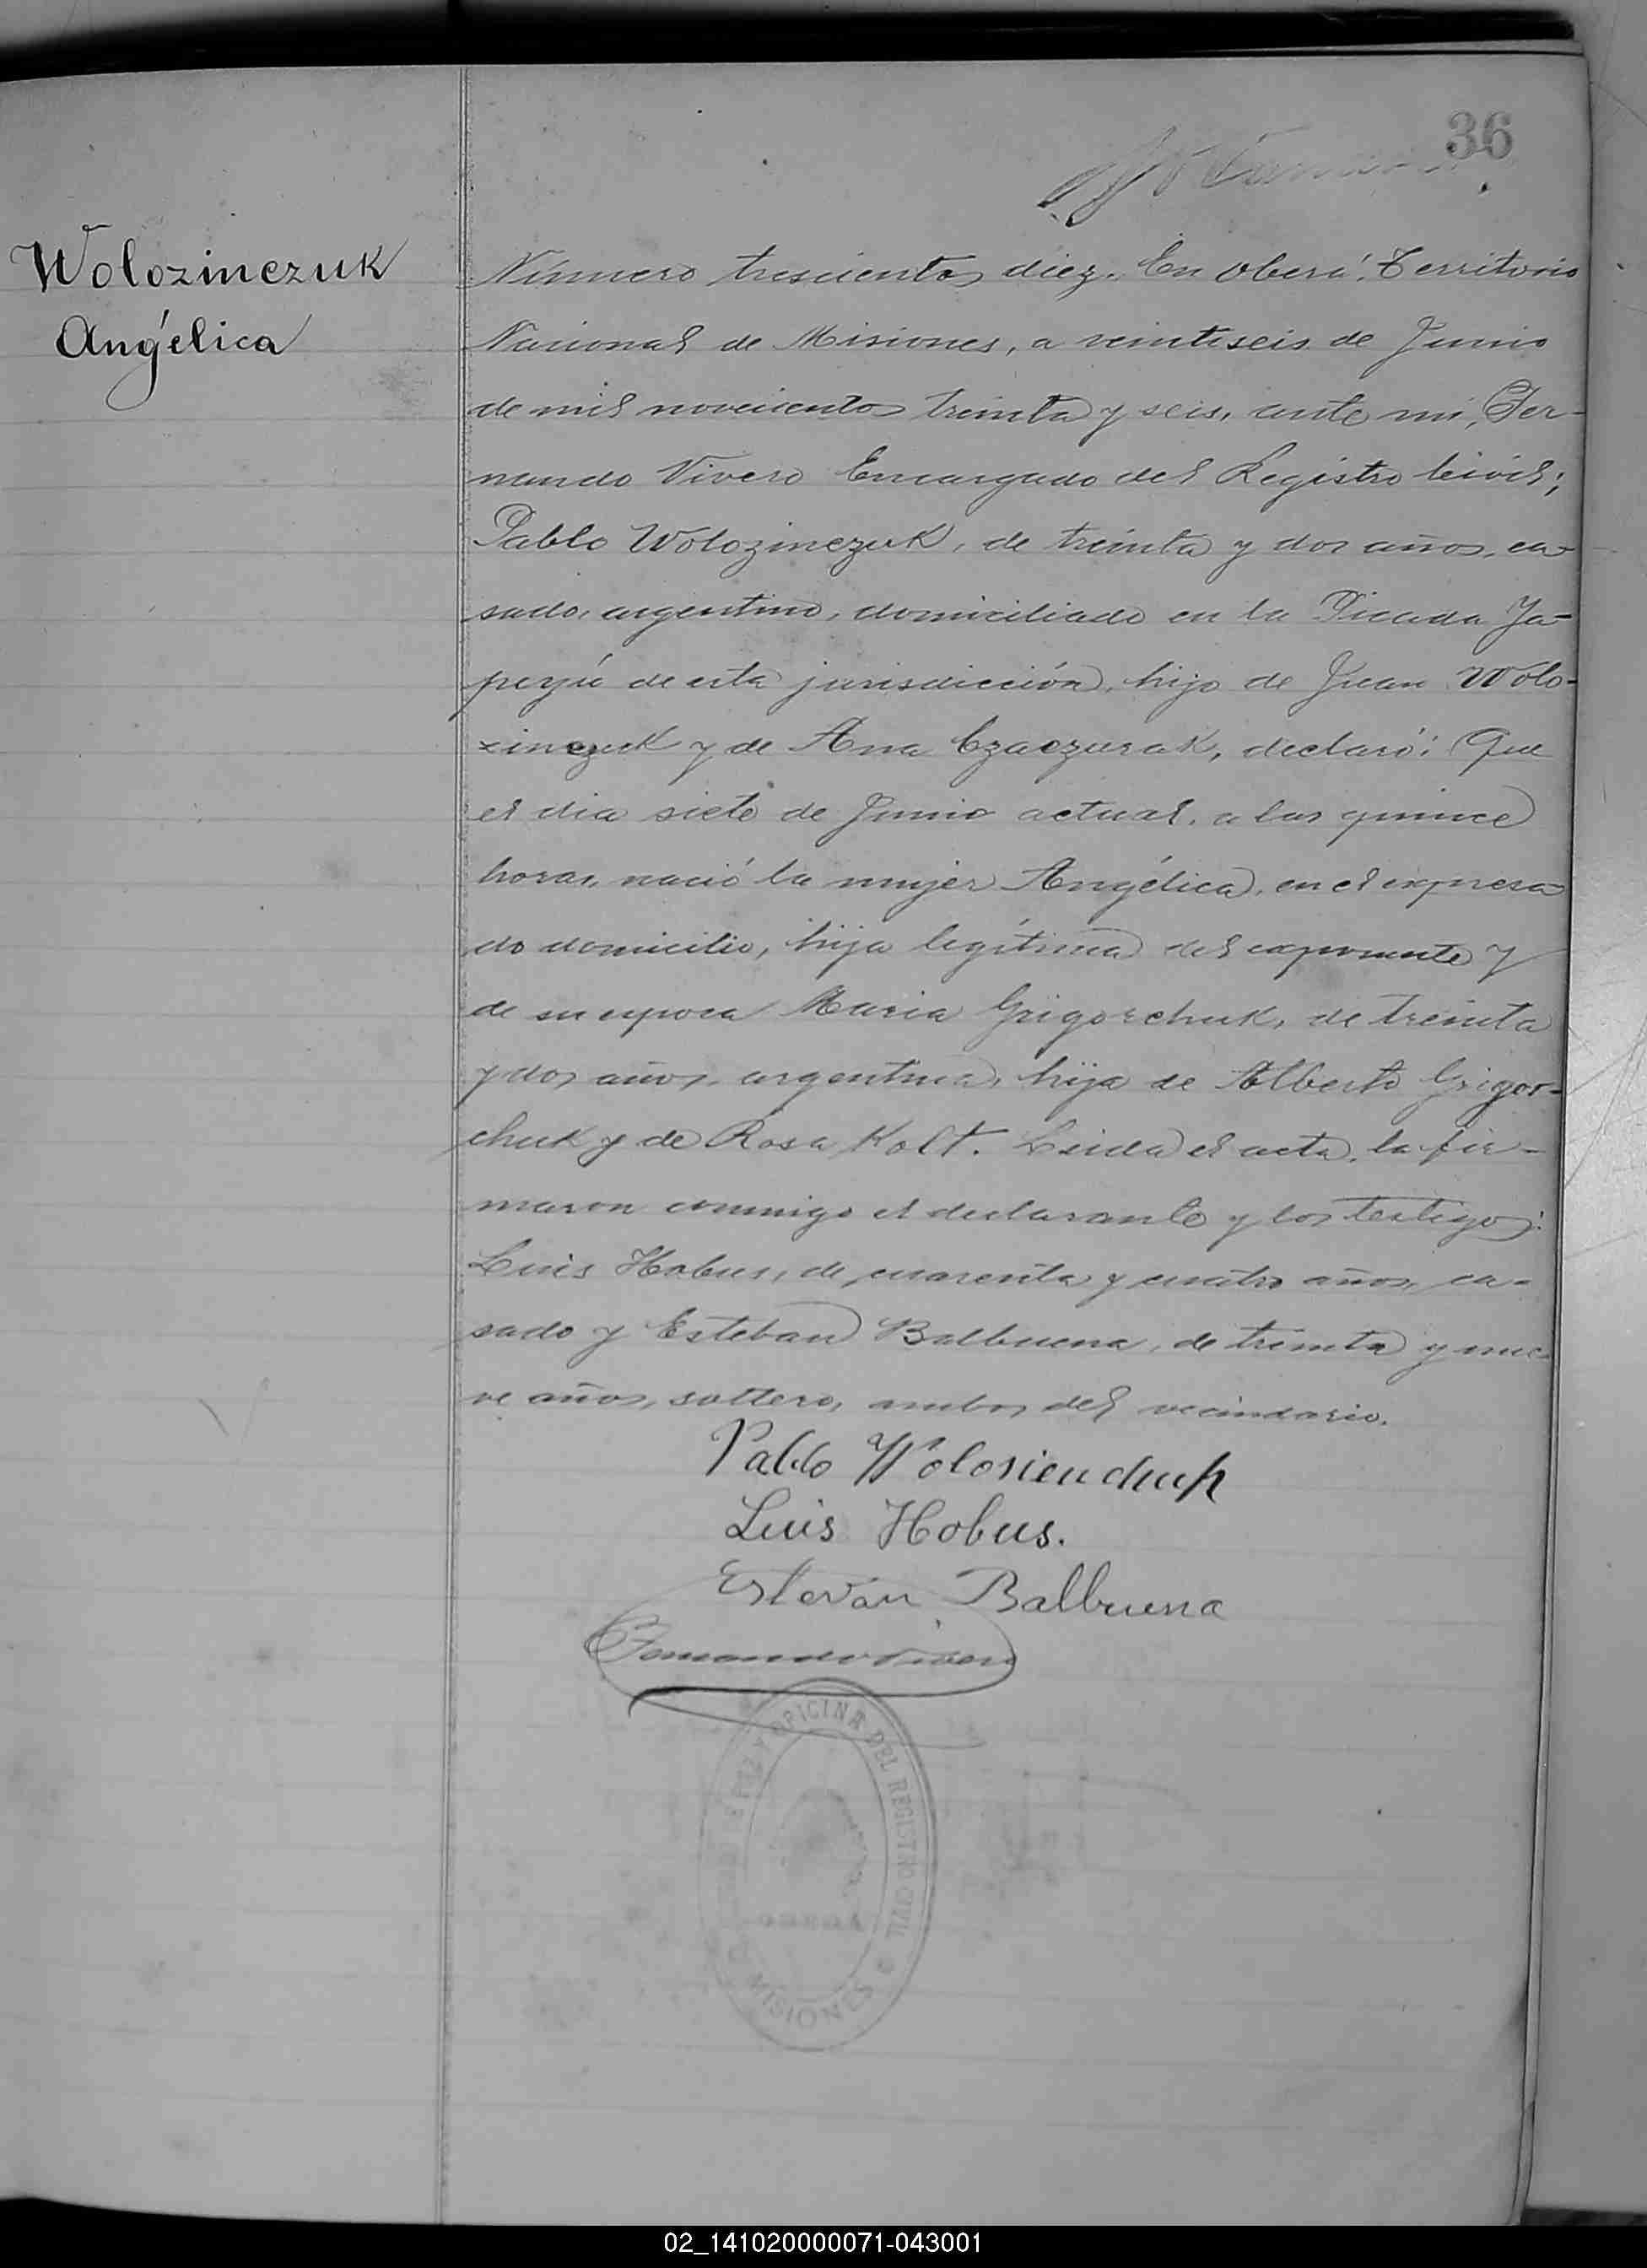 36
Wolozinczuk
Angélica
Número trescientos diez. En Oberá, Territorio
Nacional de Misiones, a veintiseis de Junio
de mil novecientos treinta y seis, ante mi, Fer-
nando Vivero Encargado del Registro Civil;
Pablo Wolozinczuk, de treinta y dos años, ca-
sado, argentino, domiciliado en la Picada Ya-
peyú de esta jurisdicción, hijo de Juan Wolo-
zinczuk y de Ana Czaczurak, declaró: Que
el dia siete de Junio actual, a las quince
horas, nació la mujer Angélica, en el expresa-
do domicilio, hija legítima del exponente y
de su esposa Maria Grigorchuk, de treinta
y dos años, argentina, hija de Alberto Grigor-
chuk y de Rosa Kolt. Leida el acta, la fir-
maron conmigo el declarante y los testigos:
Luis Hobus, de cuarenta y cuatro años, ca-
sado y Esteban Balbuena, de treinta y nue-
ve años, soltero, ambos del vecindario.
Pablo Wolosienchuk
Luis Hobus.
Estevan Balbuena
Fernando Vivero
OFICINA DEL REGISTRO CIVIL
MISIONES
02_141020000071-043001